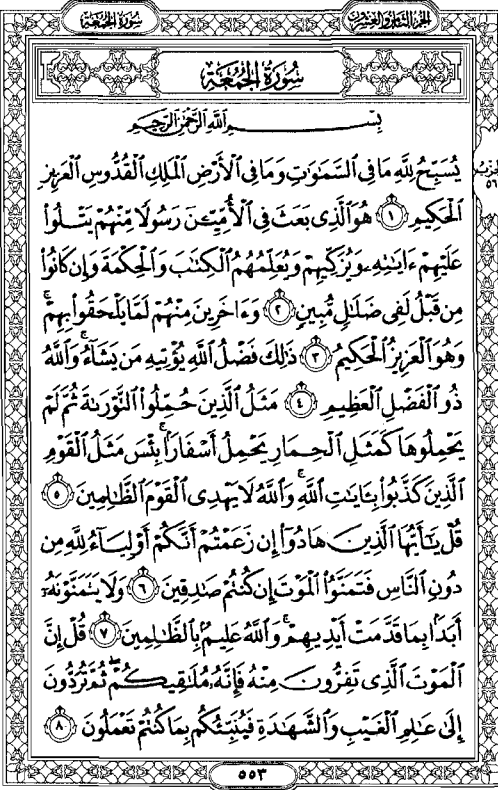 سُورَةُ الجُمُعَةِ
الجُزْءُ الثَّامِنُ وَالعِشْرُونَ
سُورَةُ الجُمُعَةِ
بِسْمِ اللَّهِ الرَّحْمَٰنِ الرَّحِيمِ
يُسَبِّحُ لِلَّهِ مَا فِي السَّمَٰوَٰتِ وَمَا فِي الْأَرْضِ الْمَلِكِ الْقُدُّوسِ الْعَزِيزِ
الْحَكِيمِ ١ هُوَ الَّذِي بَعَثَ فِي الْأُمِّيِّـۧنَ رَسُولًا مِّنْهُمْ يَتْلُوا۟
عَلَيْهِمْ ءَايَٰتِهِۦ وَيُزَكِّيهِمْ وَيُعَلِّمُهُمُ الْكِتَٰبَ وَالْحِكْمَةَ وَإِن كَانُوا۟
مِن قَبْلُ لَفِي ضَلَٰلٍ مُّبِينٍ ٢ وَءَاخَرِينَ مِنْهُمْ لَمَّا يَلْحَقُوا۟ بِهِمْ ۚ
وَهُوَ الْعَزِيزُ الْحَكِيمُ ٣ ذَٰلِكَ فَضْلُ اللَّهِ يُؤْتِيهِ مَن يَشَآءُ ۚ وَاللَّهُ
ذُو الْفَضْلِ الْعَظِيمِ ٤ مَثَلُ الَّذِينَ حُمِّلُوا۟ التَّوْرَىٰةَ ثُمَّ لَمْ
يَحْمِلُوهَا كَمَثَلِ الْحِمَارِ يَحْمِلُ أَسْفَارًۢا ۚ بِئْسَ مَثَلُ الْقَوْمِ
الَّذِينَ كَذَّبُوا۟ بِـَٔايَٰتِ اللَّهِ ۚ وَاللَّهُ لَا يَهْدِي الْقَوْمَ الظَّٰلِمِينَ ٥
قُلْ يَٰٓأَيُّهَا الَّذِينَ هَادُوٓا۟ إِن زَعَمْتُمْ أَنَّكُمْ أَوْلِيَآءُ لِلَّهِ مِن
دُونِ النَّاسِ فَتَمَنَّوُا۟ الْمَوْتَ إِن كُنتُمْ صَٰدِقِينَ ٦ وَلَا يَتَمَنَّوْنَهُۥٓ
أَبَدًۢا بِمَا قَدَّمَتْ أَيْدِيهِمْ ۚ وَاللَّهُ عَلِيمٌۢ بِالظَّٰلِمِينَ ٧ قُلْ إِنَّ
الْمَوْتَ الَّذِي تَفِرُّونَ مِنْهُ فَإِنَّهُۥ مُلَٰقِيكُمْ ۖ ثُمَّ تُرَدُّونَ
إِلَىٰ عَٰلِمِ الْغَيْبِ وَالشَّهَٰدَةِ فَيُنَبِّئُكُم بِمَا كُنتُمْ تَعْمَلُونَ ٨
٥٥٣